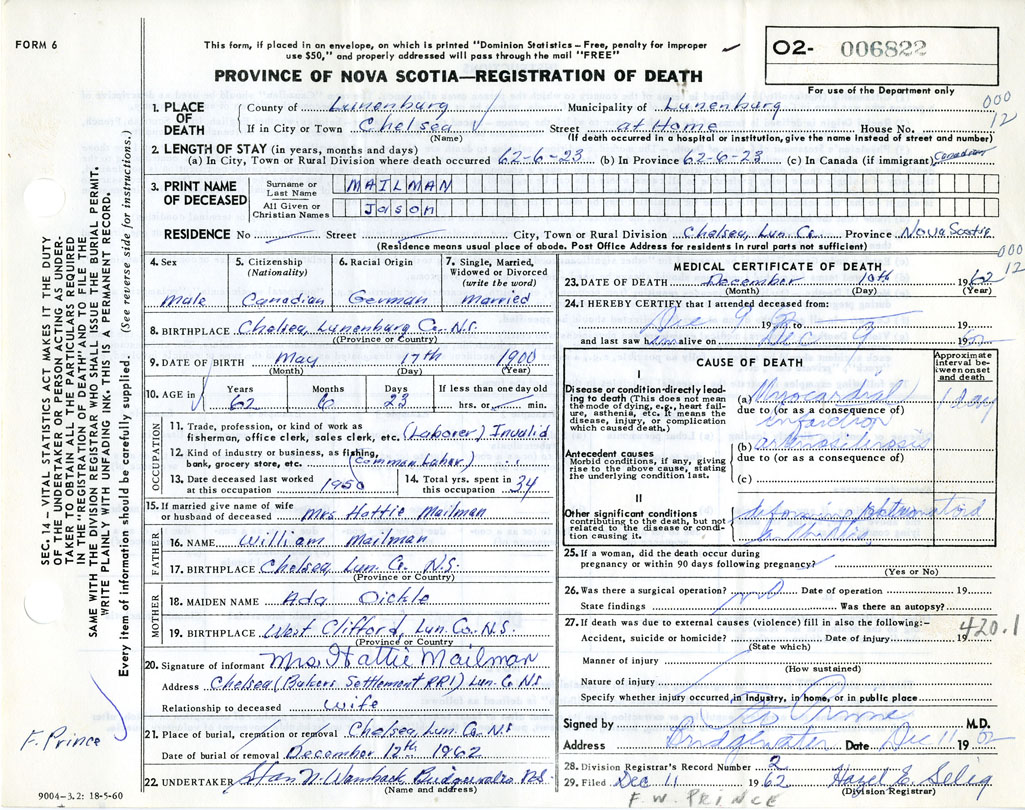 FORM 6
This form, if placed in an envelope, on which is printed "Dominion Statistics – Free, penalty for improper
use $50," and properly addressed will pass through the mail "FREE"
O2- 006822
For use of the Department only
PROVINCE OF NOVA SCOTIA—REGISTRATION OF DEATH
000
12
1. PLACE OF DEATH
County of Lunenburg Municipality of Lunenburg
If in City or Town Chelsea Street at Home House No.
(Name) (If death occurred in a hospital or institution, give the name instead of street and number)
2. LENGTH OF STAY (in years, months and days)
(a) In City, Town or Rural Division where death occurred 62-6-23 (b) In Province 62-6-23 (c) In Canada (if immigrant) Canadian
3. PRINT NAME OF DECEASED
Surname or Last Name MAILMAN
All Given or Christian Names Jason
RESIDENCE No Street City, Town or Rural Division Chelsea, Lun. Co. Province Nova Scotia
(Residence means usual place of abode. Post Office Address for residents in rural parts not sufficient)
4. Sex Male
5. Citizenship (Nationality) Canadian
6. Racial Origin German
7. Single, Married, Widowed or Divorced (write the word) Married
8. BIRTHPLACE Chelsea, Lunenburg Co. N.S.
(Province or Country)
9. DATE OF BIRTH May 17th 1900
(Month) (Day) (Year)
10. AGE in Years 62 Months 6 Days 23 If less than one day old hrs. or min.
OCCUPATION
11. Trade, profession, or kind of work as
fisherman, office clerk, sales clerk, etc. (Laborer) Invalid
12. Kind of industry or business, as fishing,
bank, grocery store, etc. (Common Labor)
13. Date deceased last worked at this occupation 1950
14. Total yrs. spent in this occupation 34
15. If married give name of wife
or husband of deceased Mrs Hattie Mailman
FATHER
16. NAME William Mailman
17. BIRTHPLACE Chelsea, Lun. Co. N.S.
(Province or Country)
MOTHER
18. MAIDEN NAME Ada Oickle
19. BIRTHPLACE West Clifford, Lun. Co. N.S.
(Province or Country)
20. Signature of informant Mrs. Hattie Mailman
Address Chelsea (Bakers Settlement RR1) Lun. Co N.S
Relationship to deceased wife
21. Place of burial, cremation or removal Chelsea, Lun. Co. N.S
Date of burial or removal December 12th 1962
22. UNDERTAKER N. N.S.
(Name and address)
9004-3.2: 18-5-60
MEDICAL CERTIFICATE OF DEATH
000
12
23. DATE OF DEATH December 10th 1962
(Month) (Day) (Year)
24. I HEREBY CERTIFY that I attended deceased from:
Dec 9 19 to 19
and last saw him alive on Dec 9 1962
CAUSE OF DEATH
Approximate interval between onset and death
I
Disease or condition directly leading to death (This does not mean the mode of dying, e.g., heart failure, asthenia, etc. It means the disease, injury, or complication which caused death.)
(a) Myocardial infarction 1 day
due to (or as a consequence of)
Antecedent causes
Morbid conditions, if any, giving rise to the above cause, stating the underlying condition last.
(b) arteriosclerosis
due to (or as a consequence of)
(c)
II
Other significant conditions
contributing to the death, but not related to the disease or condition causing it.
25. If a woman, did the death occur during
pregnancy or within 90 days following pregnancy?
(Yes or No)
26. Was there a surgical operation? no Date of operation 19
State findings Was there an autopsy?
27. If death was due to external causes (violence) fill in also the following:-
420.1
Accident, suicide or homicide? Date of injury 19
(State which)
Manner of injury
(How sustained)
Nature of injury
Specify whether injury occurred in industry, in home, or in public place
Signed by Prince M.D.
Address Bridgewater Date Dec 11 1962
28. Division Registrar's Record Number 2
29. Filed Dec 11 1962 Hazel E. Selig
(Division Registrar)
F. W. PRINCE
SEC. 14 – VITAL STATISTICS ACT MAKES IT THE DUTY
OF THE UNDERTAKER OR PERSON ACTING AS UNDERTAKER TO OBTAIN ALL THE PARTICULARS REQUIRED
IN THE "REGISTRATION OF DEATH" AND TO FILE THE
SAME WITH THE DIVISION REGISTRAR WHO SHALL ISSUE THE BURIAL PERMIT.
WRITE PLAINLY WITH UNFADING INK. THIS IS A PERMANENT RECORD.
Every item of information should be carefully supplied. (See reverse side for instructions.)
F. Prince